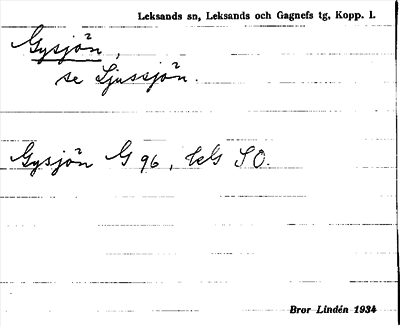 Leksands sn, Leksands och Gagnefs tg, Kopp. l.
Gysjön,
se Ljussjön.
Gysjön G 96, SO.
Bror Lindén 1934